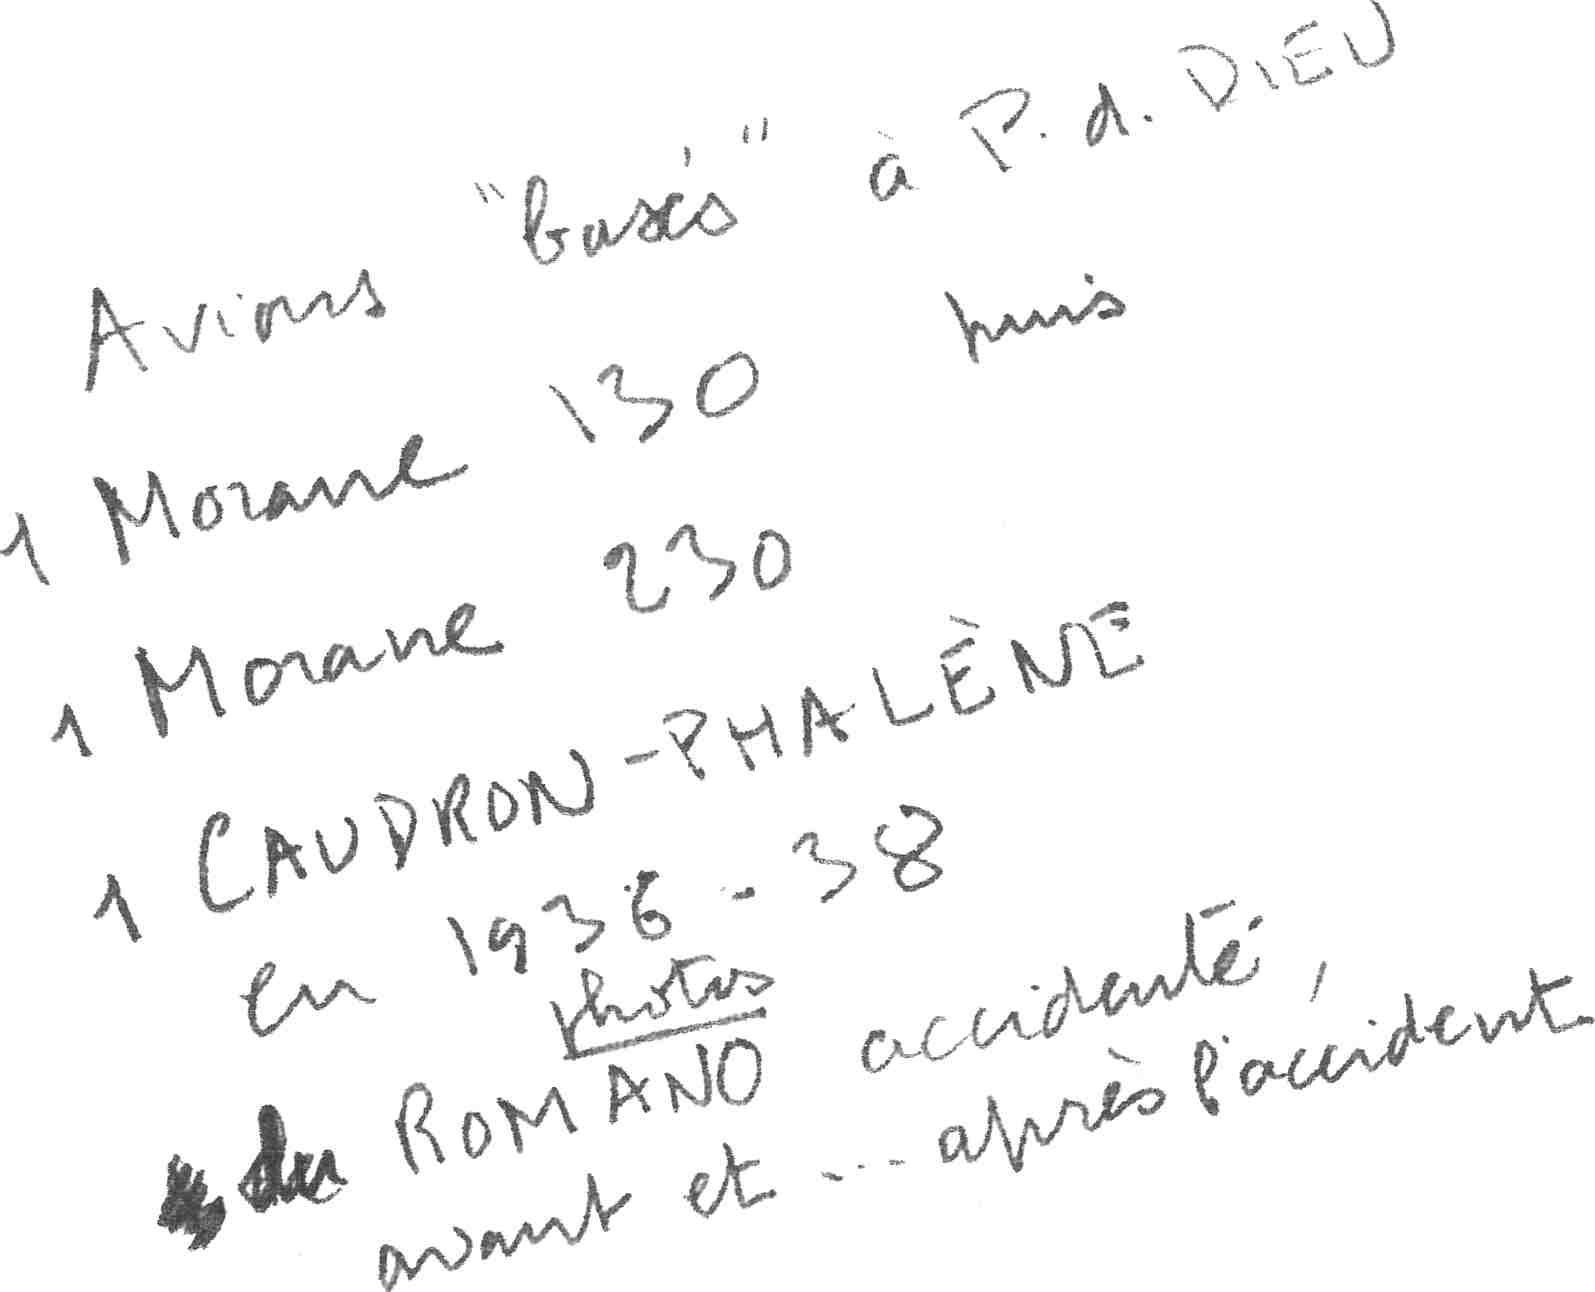 Avions "basés" à P. d. DIEU
1 Morane 130 puis
1 Morane 230
1 CAUDRON-PHALÈNE
en 1936-38
photos
du ROMANO accidenté,
avant et ... après l'accident.